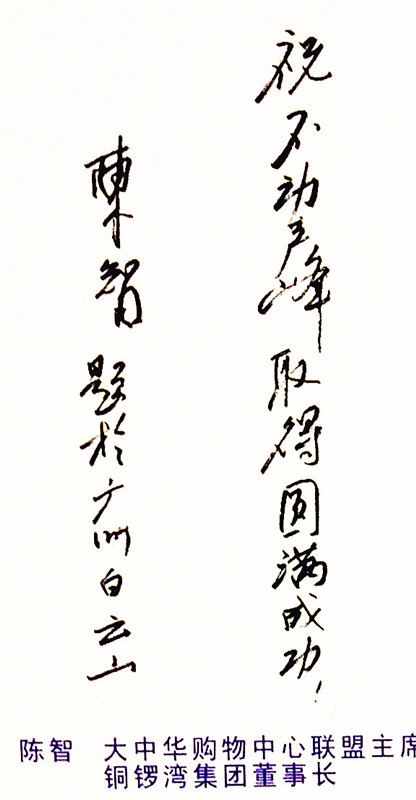 祝不动产峰取得圆满成功!
陳智 题於广州白云山
陈智 大中华购物中心联盟主席
铜锣湾集团董事长